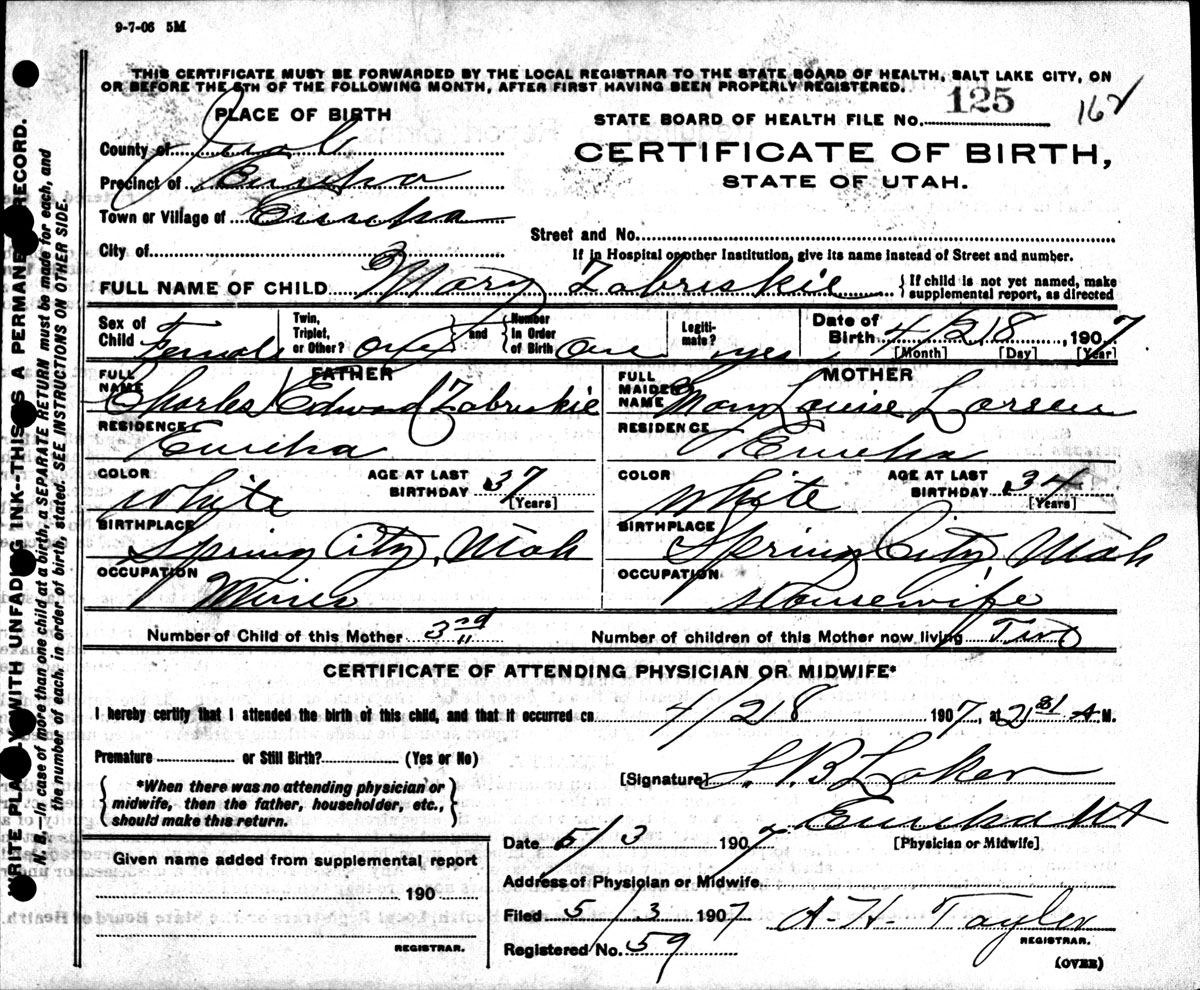 9-7-06 5M
THIS CERTIFICATE MUST BE FORWARDED BY THE LOCAL REGISTRAR TO THE STATE BOARD OF HEALTH, SALT LAKE CITY, ON
OR BEFORE THE 5TH OF THE FOLLOWING MONTH, AFTER FIRST HAVING BEEN PROPERLY REGISTERED.
PLACE OF BIRTH
STATE BOARD OF HEALTH FILE No. 125 162
County of Juab
CERTIFICATE OF BIRTH,
Precinct of Eureka
STATE OF UTAH.
Town or Village of Eureka
Street and No.
City of
If in Hospital or other Institution, give its name instead of Street and number.
FULL NAME OF CHILD Mary Zabriskie
{ If child is not yet named, make
supplemental report, as directed
Sex of Child Female
Twin, Triplet, or Other? one
and
Number In Order of Birth one
Legiti- mate? yes
Date of Birth 4/28, 1907
[Month] [Day] [Year]
FATHER
FULL NAME Charles Edward Zabriskie
RESIDENCE Eureka
COLOR White
AGE AT LAST BIRTHDAY 37 [Years]
BIRTHPLACE Spring City, Utah
OCCUPATION Miner
MOTHER
FULL MAIDEN NAME Mary Louise Larsen
RESIDENCE Eureka
COLOR White
AGE AT LAST BIRTHDAY 34 [Years]
BIRTHPLACE Spring City, Utah
OCCUPATION Housewife
Number of Child of this Mother 3rd
Number of children of this Mother now living Two
CERTIFICATE OF ATTENDING PHYSICIAN OR MIDWIFE*
I hereby certify that I attended the birth of this child, and that it occurred on 4/28 1907, at A M.
Premature or Still Birth? (Yes or No)
[Signature] B Laker
*When there was no attending physician or
midwife, then the father, householder, etc.,
should make this return.
Eureka Ut
Date 5/3 1907
[Physician or Midwife]
Given name added from supplemental report
190
REGISTRAR.
Address of Physician or Midwife
Filed 5/3 1907 A H. Taylor
REGISTRAR.
Registered No. 59
(OVER)
WRITE PLAINLY WITH UNFADING INK--THIS IS A PERMANENT RECORD.
N. B.—In case of more than one child at a birth, a SEPARATE RETURN must be made for each, and
the number of each, in order of birth, stated. SEE INSTRUCTIONS ON OTHER SIDE.